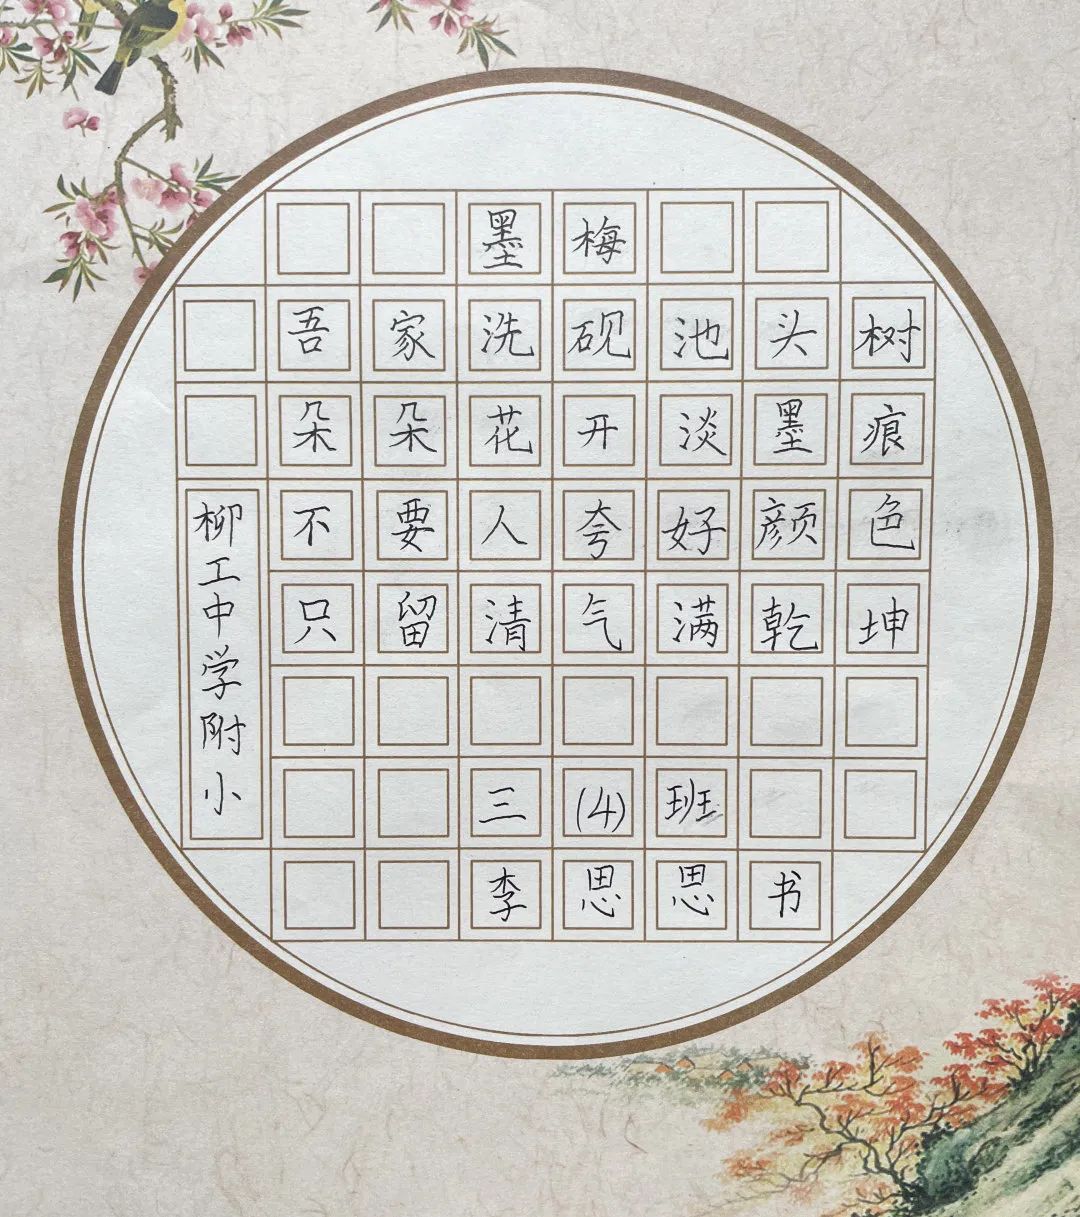 墨梅
吾家洗砚池头树
朵朵花开淡墨痕
不要人夸好颜色
只留清气满乾坤
柳工中学附小
三(4)班
李思思书